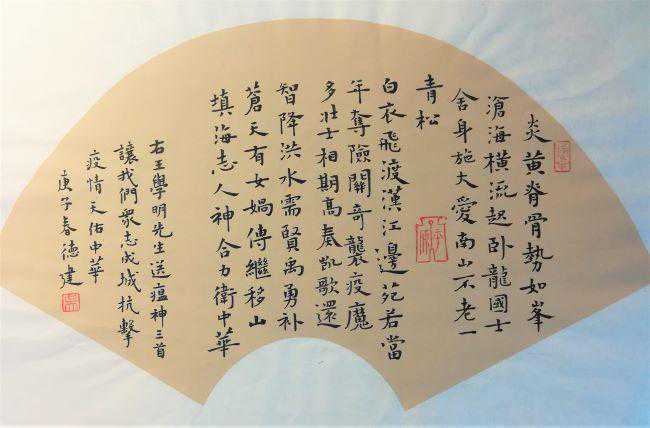 炎黃脊骨勢如峯
滄海橫流起卧龍國士
舍身施大愛南山不老一
青松
白衣飛渡漢江邊苑若當
年奪險關奇襲疫魔
多壯士相期高奏凱歌還
智降洪水需賢禹勇補
蒼天有女媧傳繼移山
填海志人神合力衛中華
右王學明先生送瘟神三首
讓我們衆志成城抗擊
疫情天佑中華
庚子春德建